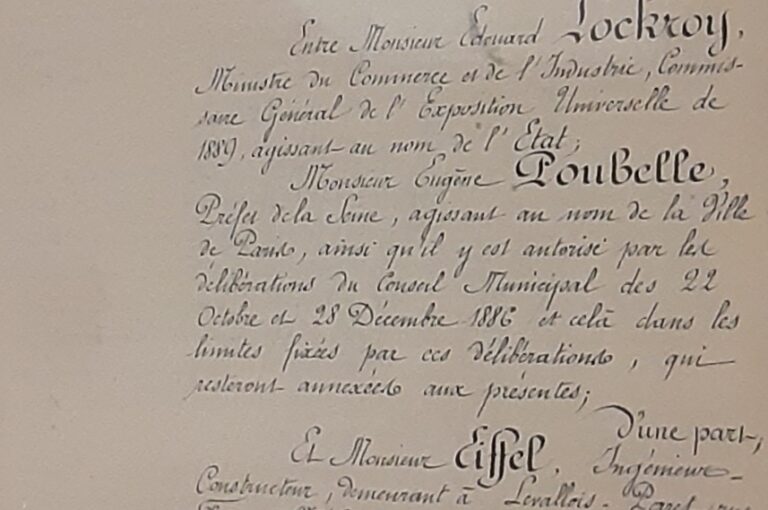 Entre Monsieur Edouard Lockroy,
Ministre du Commerce et de l'Industrie, Commis-
saire Général de l'Exposition Universelle de
1889, agissant au nom de l'Etat;
Monsieur Eugène Poubelle,
Préfet de la Seine, agissant au nom de la Ville
de Paris, ainsi qu'il y est autorisé par les
délibérations du Conseil Municipal des 22
Octobre et 28 Décembre 1886 et celà dans les
limites fixées par ces délibérations, qui
resteront annexées aux présentes;
D'une part,
Et Monsieur Eiffel, Ingénieur-
Constructeur, demeurant à Levallois-Perret, rue